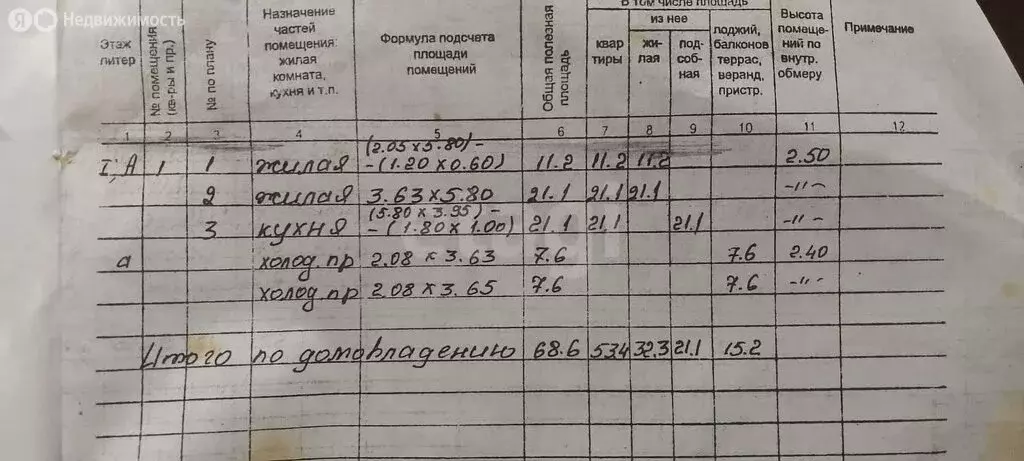 Я Недвижимость
Этаж литер
№ помещения (кв-ры и пр.)
№ по плану
Назначение частей помещения: жилая комната, кухня и т.п.
Формула подсчета площади помещений
Общая полезная площадь
В том числе площадь
из нее
квар тиры
жи- лая
под- соб- ная
лоджий, балконов террас, веранд, пристр.
Высота помеще- ний по внутр. обмеру
Примечание
1 2 3 4 5 6 7 8 9 10 11 12
I, А 1 1 жилая (2.05 х 5.80) – – (1.20 х 0.60) 11.2 11.2 11.2 2.50
2 жилая 3.63 х 5.80 21.1 21.1 21.1 -"-
3 кухня (5.80 х 3.95) – – (1.80 х 1.00) 21.1 21.1 21.1 -"-
а холод. пр 2.08 х 3.63 7.6 7.6 2.40
холод. пр 2.08 х 3.65 7.6 7.6 -"-
Итого по домовладению 68.6 53.4 32.3 21.1 15.2